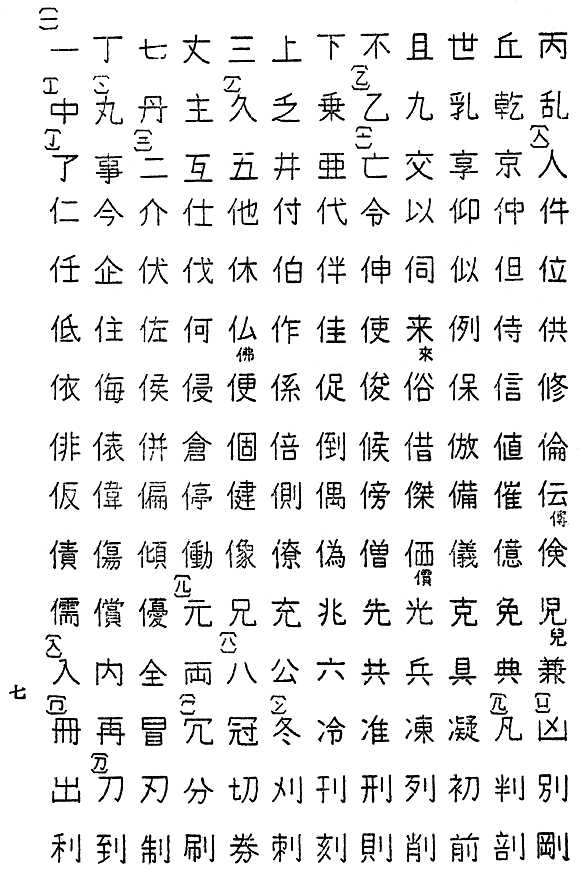 〔一〕
一丁七丈三上下不且世丘丙
〔丨〕〔丶〕〔丿〕〔乙〕
中丸丹主久乏乗乙九乳乾乱
〔亅〕〔二〕〔亠〕〔人〕
了事二互五井亜亡交享京人
仁今介仕他付代令以仰仲件
任企伏伐休伯伴伸伺似但位
低住佐何仏作佳使来例侍供
佛 來
依侮侯侵便係促俊俗保信修
俳俵併倉個倍倒候借倣値倫
仮偉偏停健側偶傍傑備催伝
傳
債傷傾働像僚偽僧価儀億倹
價
〔儿〕
儒償優元兄充兆先光克免児
兒
〔入〕〔八〕
入内全両八公六共兵具典兼
七
〔冂〕〔冖〕〔冫〕〔几〕〔凵〕
冊再冒冗冠冬冷准凍凝凡凶
〔刀〕
出刀刃分切刈刊刑列初判別
利到制刷券刺刻則削前剖剛